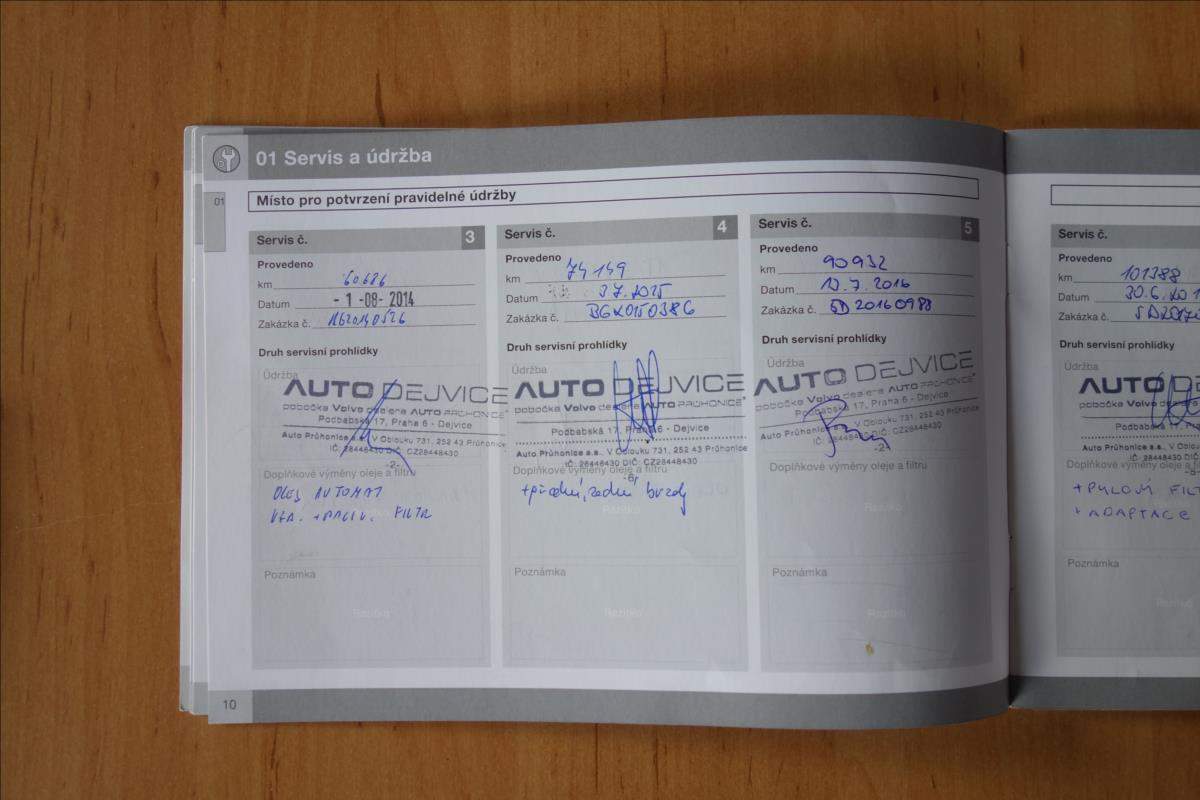 01 Servis a údržba
01
Místo pro potvrzení pravidelné údržby
Servis č. 3
Provedeno
km 60686
Datum - 1 -08- 2014
Zakázka č.
Druh servisní prohlídky
Údržba
AUTO DEJVICE
pobočka Volvo dealera AUTO PRŮHONICE
Podbabská 17, Praha 6 - Dejvice
Auto Průhonice a.s., V Oblouku 731, 252 43 Průhonice
IČ: 28448430 DIČ: CZ28448430
-2-
Doplňkové výměny oleje a filtru
OLEJ AUTOMAT
FILTR
Poznámka
Servis č. 4
Provedeno
km 74 149
Datum 3.7.2015
Zakázka č. BG20150386
Druh servisní prohlídky
Údržba
AUTO DEJVICE
pobočka Volvo dealera AUTO PRŮHONICE
Podbabská 17, Praha 6 - Dejvice
Auto Průhonice a.s., V Oblouku 731, 252 43 Průhonice
IČ: 28448430 DIČ: CZ28448430
Doplňkové výměny oleje a filtru
+přední, zadní brzdy
Poznámka
Servis č. 5
Provedeno
km 90 932
Datum 13.7.2016
Zakázka č. SD20160988
Druh servisní prohlídky
Údržba
AUTO DEJVICE
pobočka Volvo dealera AUTO PRŮHONICE
Podbabská 17, Praha 6 - Dejvice
Auto Průhonice a.s., V Oblouku 731, 252 43
IČ: 28448430 DIČ: CZ28448430
-2-
Doplňkové výměny oleje a filtru
Poznámka
10
Servis č.
Provedeno
km 101388
Datum 30.6.201
Zakázka č. SD2017
Druh servisní prohlídky
Údržba
AUTO
pobočka Volvo
Podbabská
Auto Průhonice a.s., V
IČ: 28448430
Doplňkové výměny oleje a filtru
+ PYLOVÝ FILT
+ ADAPTACE
Poznámka